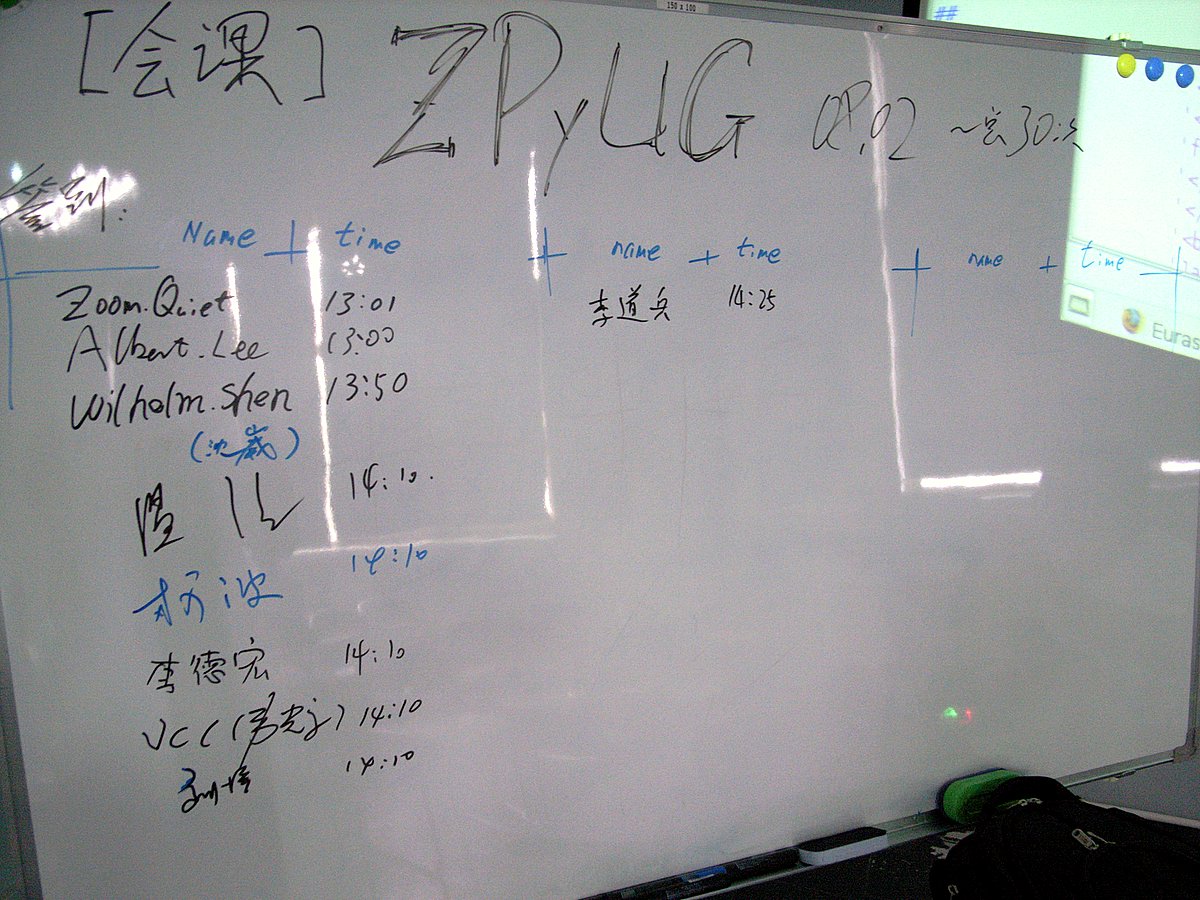 150 x 100
##
[会课] ZPyUG 08.02 ~会30次
签到:
Name time
Zoom.Quiet 13:01
Albert.Lee 13:00
Wilholm.Shen 13:50
(沈崴)
14:10.
杨波 14:10
李德宏 14:10
VCC 14:10
14:10
name time
李道兵 14:25
name time
Euras